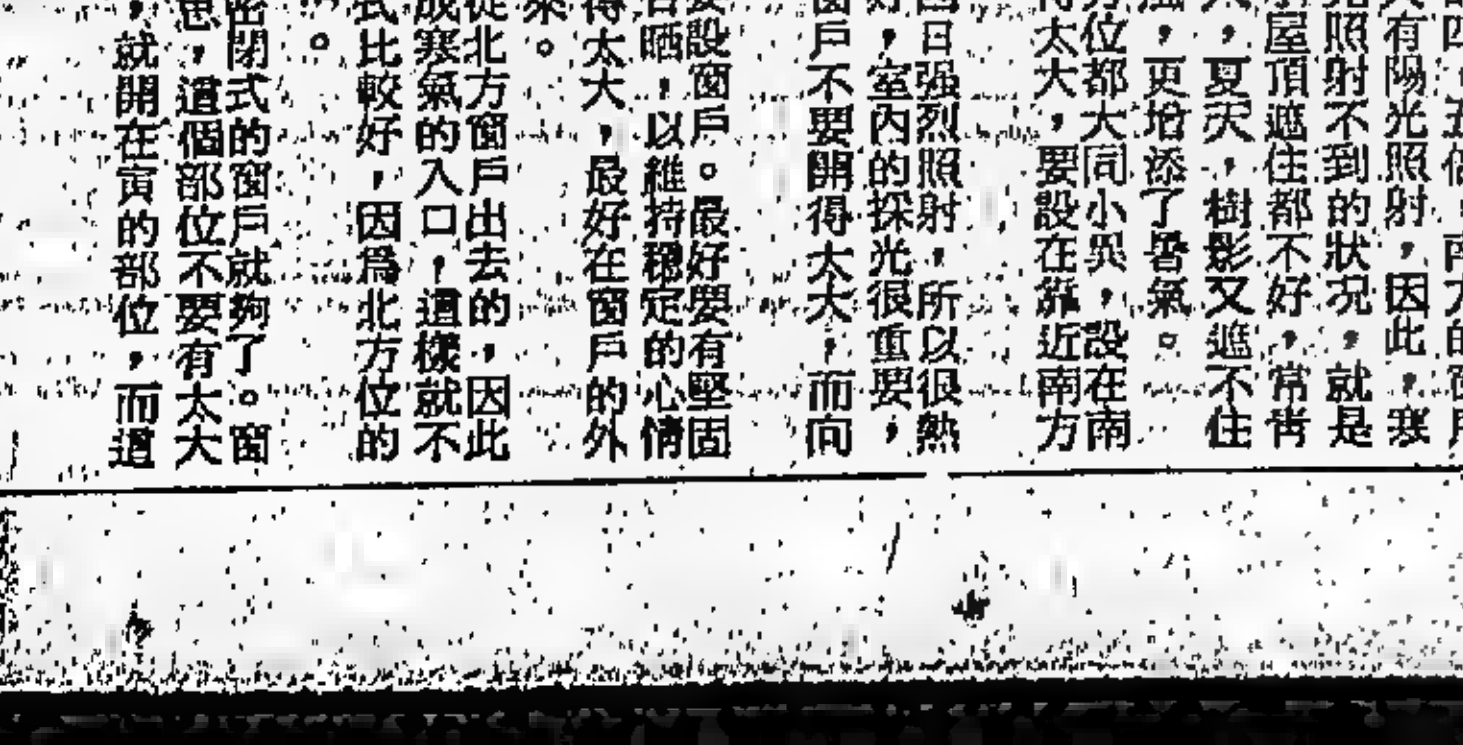 四、五倍,南方的窗戶
有陽光照射,因此,寒
照射不到的狀況,就是
屋頂遮住都不好,常常
,夏天,樹影又遮不住
,更增添了暑氣。
位都大同小異,設在南
太大,要設在靠近南方
日强烈照射,所以很熱
,室內的採光很重要,
窗戶不要開得太大,而向
要設窗戶。最好要有堅固
晒,以維持穩定的心情
得太大,最好在窗戶的外
來。
從北方窗戶出去的,因此
成寒氣的入口,這樣就不
式比較好,因爲北方位的
。
密閉式的窗戶就夠了。窗
思,這個部位不要有太大
,就開在寅的部位,而這